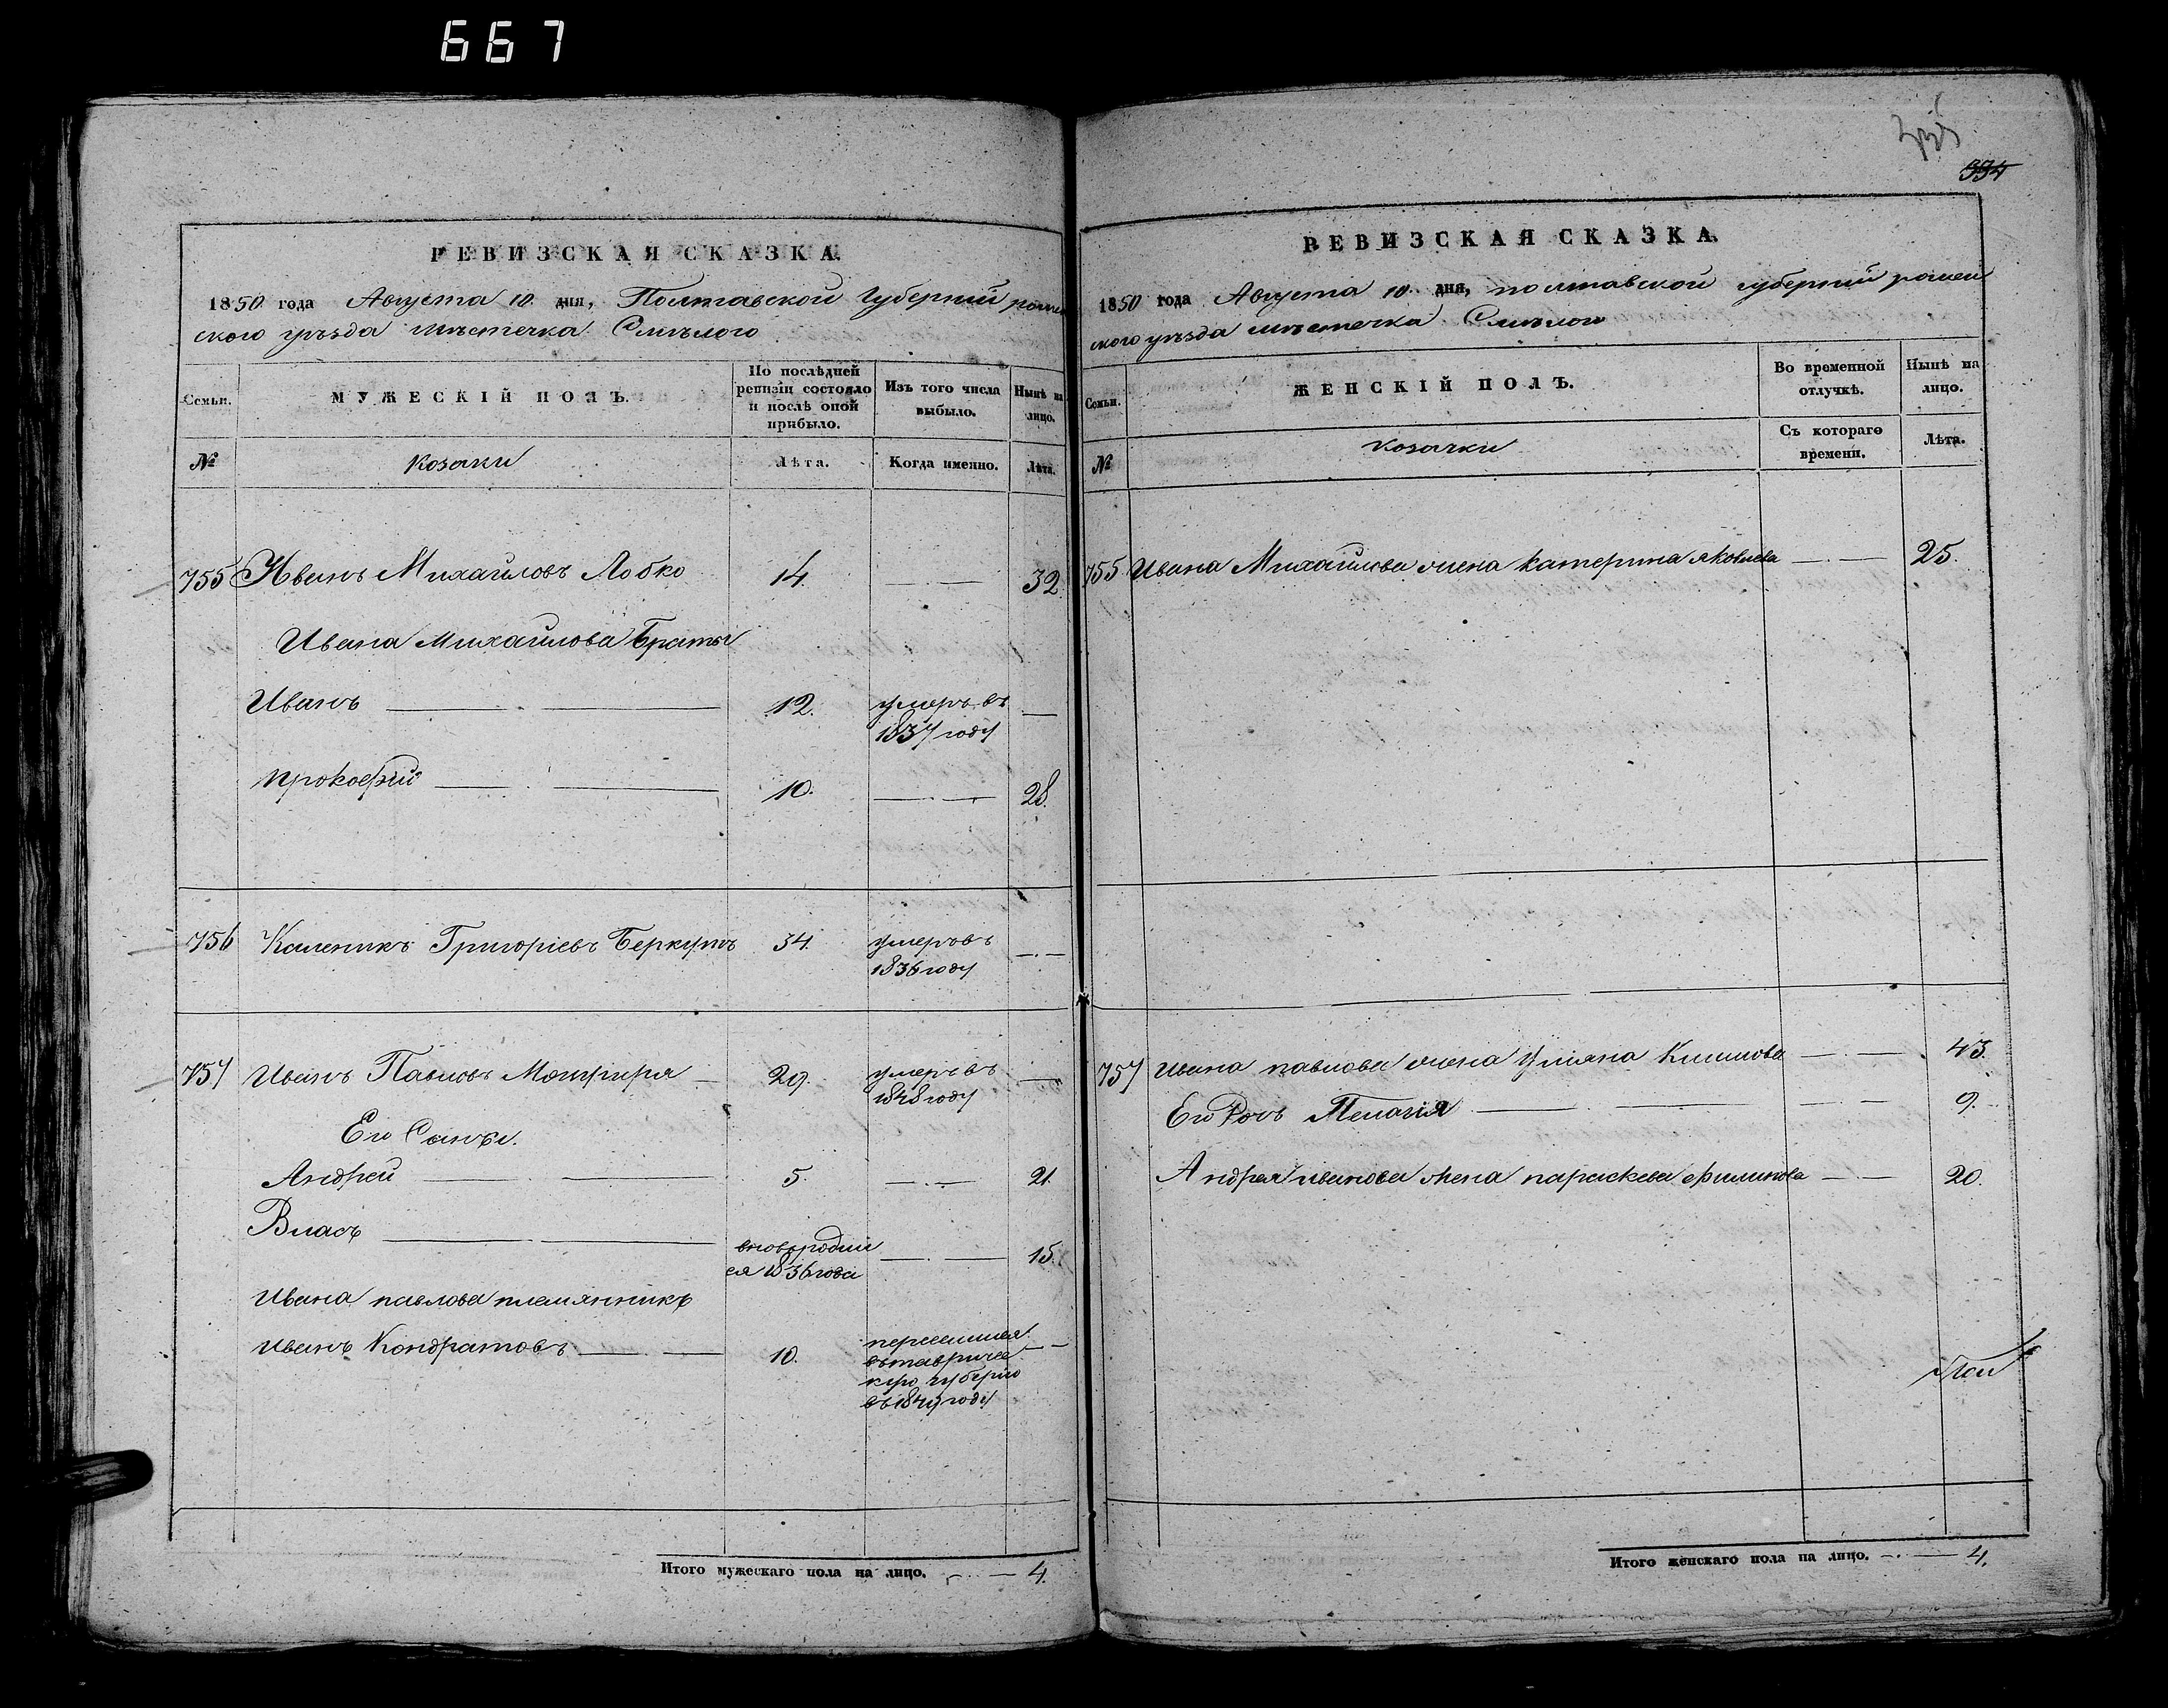 667
334
РЕВИЗСКАЯ СКАЗКА.
1850 года Августа 10. дня, Полтавской Губерній ромен
ского уѣзда мѣстечка Смѣлого
Семьи.
МУЖЕСКІЙ ПОЛЪ.
По послѣдней
ревизіи состояло
и послѣ оной
прибыло.
Изъ того числа
выбыло.
Нынѣ на
лицо.
№
козаки
Лѣта.
Когда именно.
Лѣта.
755 Иванъ Михайловъ Лобко 14. 32.
Ивана Михайлова Браты
Иванъ 12. умеръ въ
1837 году
Прокофій 10. 28.
756 Каленикъ Григоріевъ Беркутъ 34. умеръ въ
1836 году
757 Иванъ Павловъ 29. умеръ въ
1848 году
Его Сыны.
Андрей 5. 21.
Власъ
вновь родил
ся 1836 года 15.
Ивана павлова племянникъ
Иванъ Кондратовъ 10.
переселился
въ тавричес
кую губерію
въ 1849 году
Итого мужескаго пола на лицо. 4.
РЕВИЗСКАЯ СКАЗКА.
1850 года Августа 10. дня, полтавской губерній ромен
ского уѣзда мѣстечка Смѣлого
Семьи.
ЖЕНСКІЙ ПОЛЪ.
Во временной
отлучкѣ.
Нынѣ на
лицо.
№
козачки
Съ котораго
времени.
Лѣта.
755 Ивана Михайлова жена катерина яковлева 25.
757 Ивана павлова жена Ульяна 43.
Его Дочь Пелагія 9.
Андрея иванова жена параскева филипова 20.
Итого женскаго пола на лицо. 4.